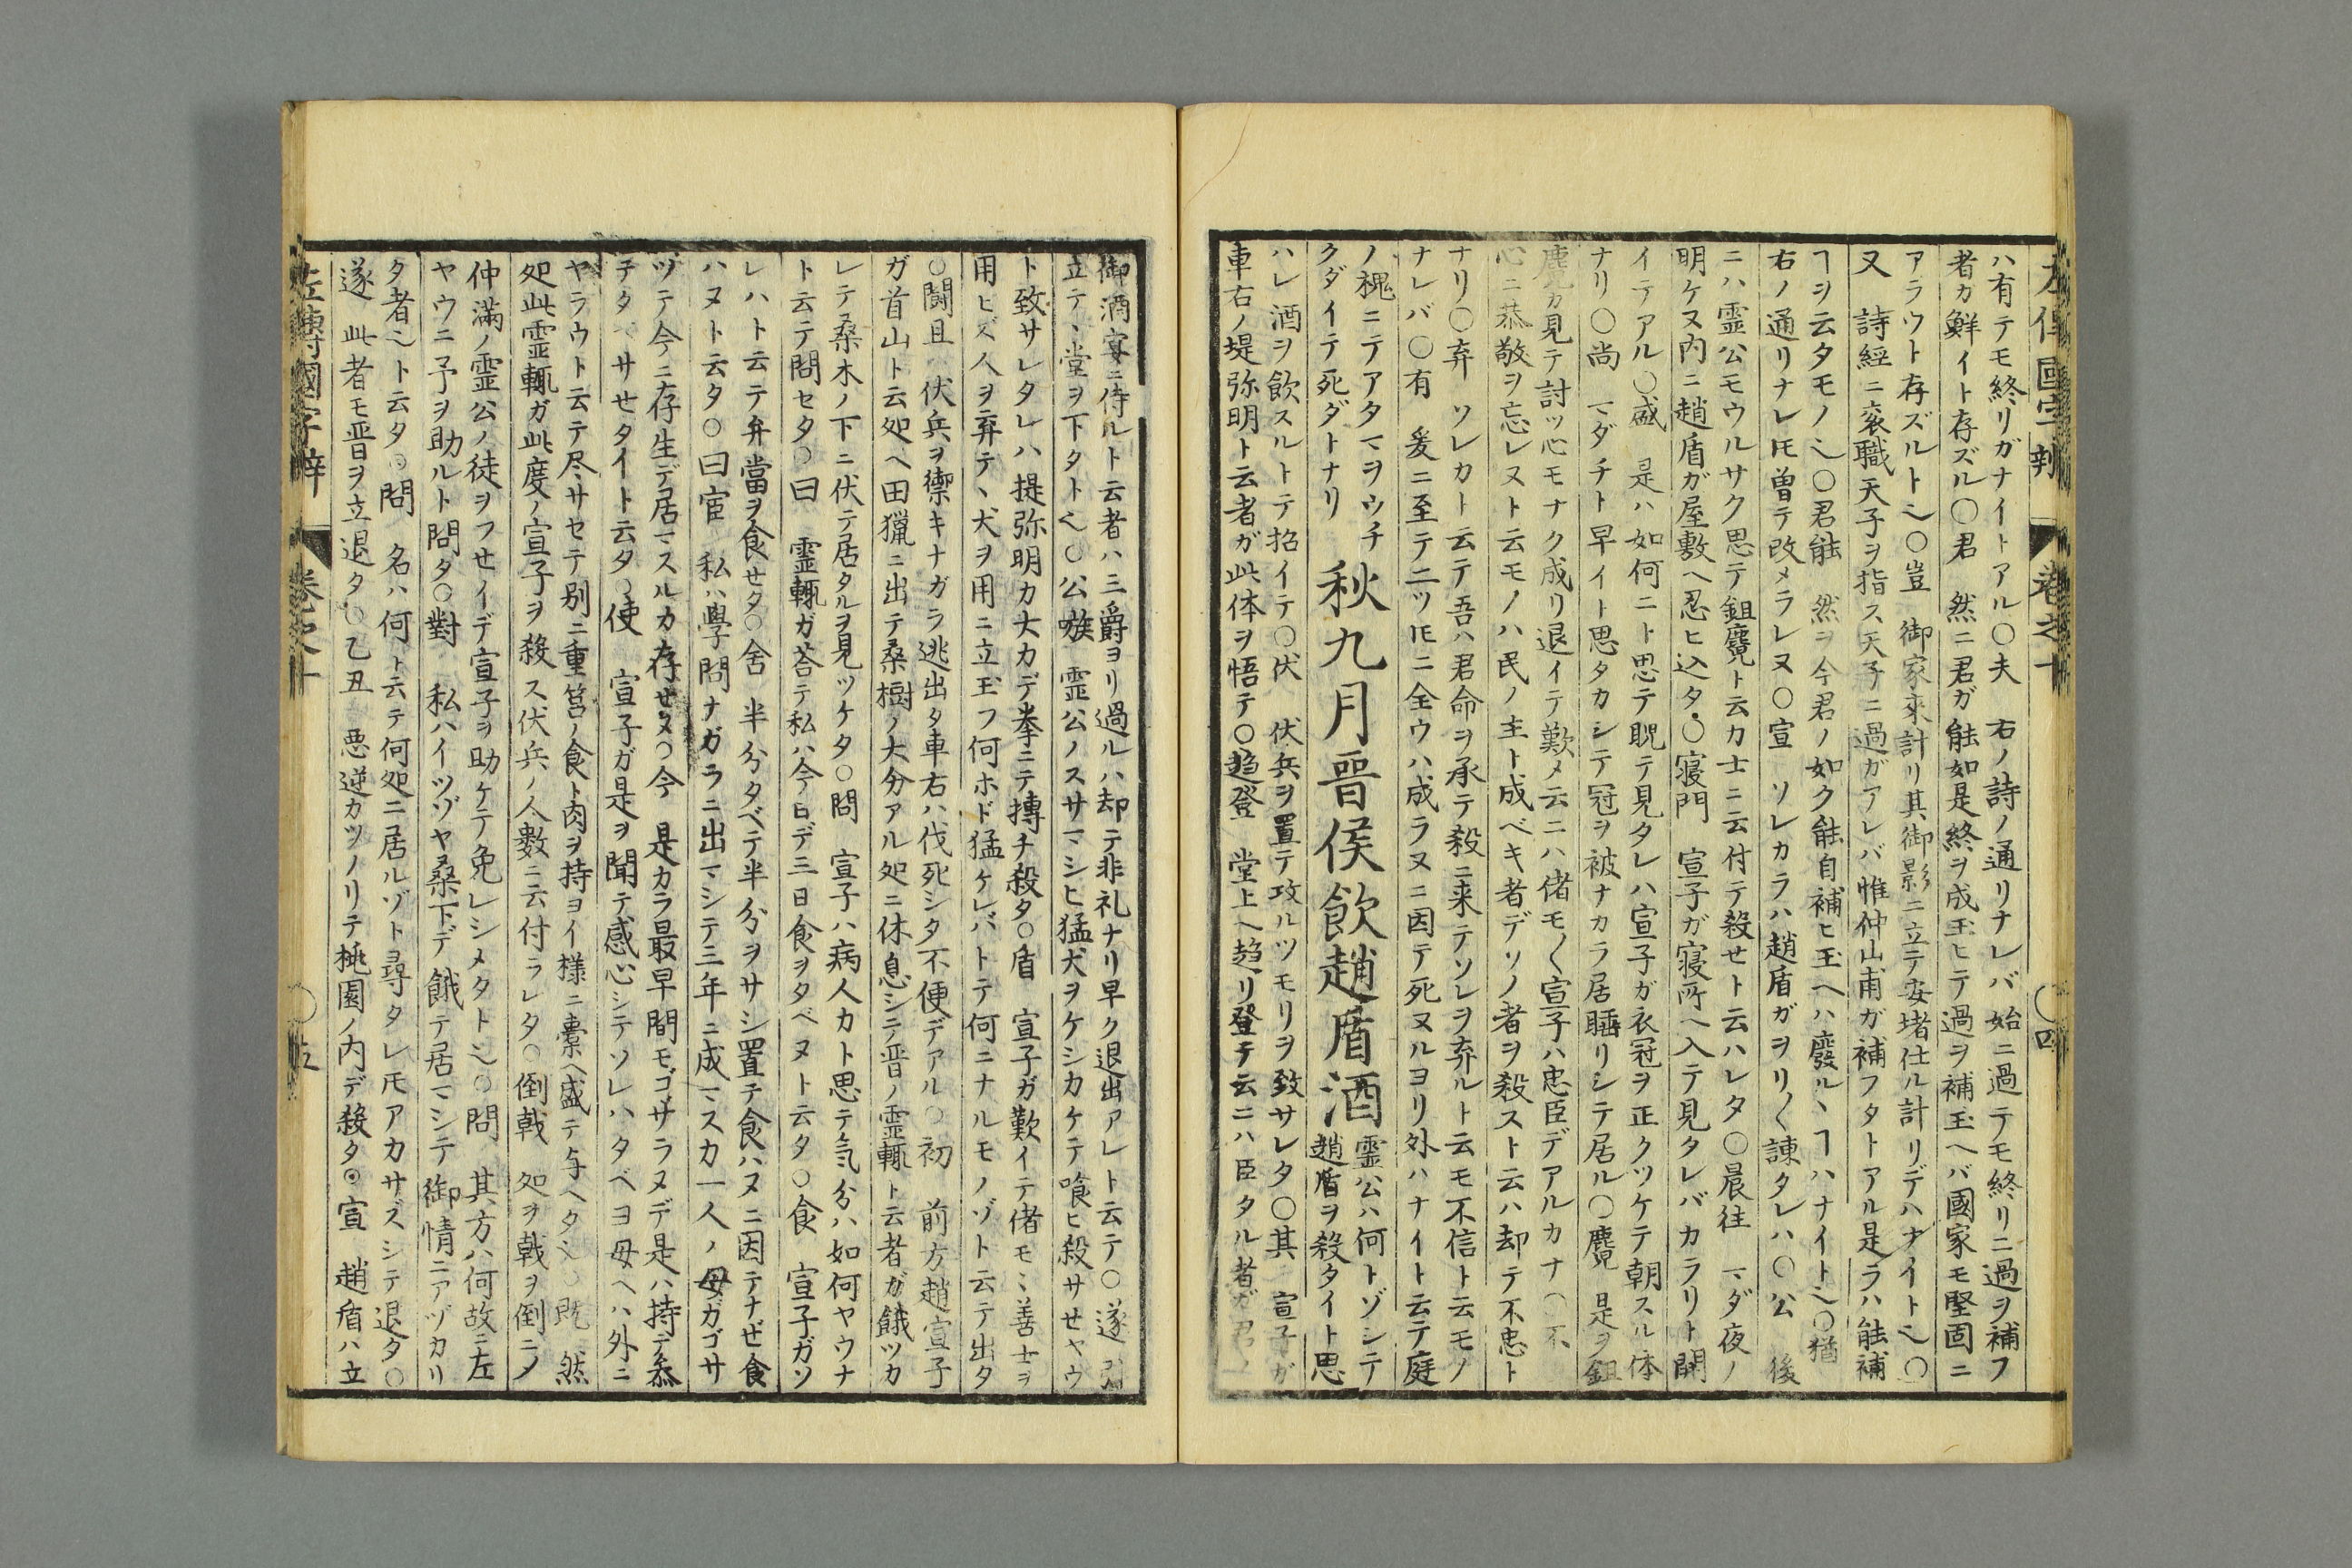 左傳國字辨 卷之十 ○四
ハ有テモ終リガナイトアル○夫 右ノ詩ノ通リナレバ始ニ過テモ終リニ過ヲ補フ
者カ鮮イト存ズル○君 然ニ君ガ能如是終ヲ成玉ヒテ過ヲ補玉ヘバ國家モ堅固ニ
アラウト存ズルト〆○豈 御家來計リ其御影ニ立テ安堵仕ル計リデハナイト〆○
又 詩經ニ袞職天子ヲ指ス天子ニ過ガアレバ惟仲山甫ガ補フタトアル是ラハ能補
ヿヲ云タモノ〆○君能 然ヲ今君ノ如ク能自補ヒ玉ヘハ廢ルヽヿハナイト〆○猶
右ノ通リナレ𪜈曽テ改メラレヌ○宣 ソレカラハ趙盾ガヲリ〱諌タレハ○公 後
ニハ霊公モウルサク思テ鉏麑ト云カ士ニ云付テ殺せト云ハレタ○晨往 マダ夜ノ
明ケヌ内ニ趙盾ガ屋敷ヘ忍ヒ込タ○寝門 宣子ガ寝所ヘ入テ見タレバカラリト開
イテアル○盛 是ハ如何ニト思テ覗テ見タレハ宣子ガ衣冠ヲ正クツケテ朝スル体
ナリ○尚 マダチト早イト思タカシテ冠ヲ被ナカラ居睡リシテ居ル○麑 是ヲ鉏
麑カ見テ討ツ心モナク成リ退イテ歎メ云ニハ偖モ〱宣子ハ忠臣デアルカナ○不
心ニ恭敬ヲ忘レヌト云モノハ民ノ主ト成ベキ者デソノ者ヲ殺スト云ハ却テ不忠ト
ナリ○弃 ソレカト云テ吾ハ君命ヲ承テ殺ニ来テソレヲ弃ルト云モ不信ト云モノ
ナレバ○有 爰ニ至テ二ツ𪜈ニ全ウハ成ラヌニ因テ死ヌルヨリ外ハナイト云テ庭
ノ槐ニテアタマヲウチ
クダイテ死ダトナリ
秋九月晉侯飲趙盾酒
霊公ハ何トゾシテ
趙盾ヲ殺タイト思
ハレ酒ヲ飲スルトテ招イテ○伏 伏兵ヲ置テ攻ルツモリヲ致サレタ○其 宣子ガ
車右ノ堤弥明ト云者ガ此体ヲ悟テ○趋登 堂上ヘ趋リ登テ云ニハ臣タル者ガ君ノ
御酒宴ニ侍ルト云者ハ三爵ヨリ過ルハ却テ非礼ナリ早ク退出アレト云テ○遂 引
立テヽ堂ヲ下タト〆○公嗾 霊公ノスサマシヒ猛犬ヲケシカケテ喰ヒ殺サせヤウ
ト致サレタレハ提弥明カ大カデ拳ニテ摶チ殺タ○盾 宣子ガ歎イテ偖モ〻善士ヲ
用ヒズ人ヲ弃テヽ犬ヲ用ニ立玉フ何ホド猛ケレバトテ何ニナルモノゾト云テ出タ
○闘且 伏兵ヲ禦キナガラ逃出タ車右ハ伐死シタ不便デアル○初 前方趙宣子
ガ首山ト云処ヘ田獵ニ出テ桑樹ノ大分アル処ニ休息シテ晋ノ霊輒ト云者ガ餓ツカ
レテ桑木ノ下ニ伏テ居タルヲ見ツケタ○問 宣子ハ病人カト思テ気分ハ如何ヤウナ
ト云テ問セタ○曰 霊輒ガ荅テ私ハ今日デ三日食ヲタベヌト云タ○食 宣子ガソ
レハト云テ弁當ヲ食せタ○舍 半分タベテ半分ヲサシ置テ食ハヌニ因テナぜ食
ハヌト云タ○曰宦 私ハ學問ナガラニ出マシテ三年ニ成マスカ一人ノ母ガゴサ
ツテ今ニ存生デ居マスルカ存せヌ○今 是カラ最早間モゴザラヌデ是ハ持テ忝
テタベサせタイト云タ○使 宣子ガ是ヲ聞テ感心シテソレハタベヨ母ヘハ外ニ
ヤラウト云テ尽サセテ別ニ重筥ノ食ト肉ヲ持ヨイ様ニ橐ヘ盛テ与ヘタ〆○既 然
処此霊輒ガ此度ノ宣子ヲ殺ス伏兵ノ人數ニ云付ラレタ○倒戟 処ヲ戟ヲ倒ニノ
仲滿ノ霊公ノ徒ヲフせイデ宣子ヲ助ケテ免レシメタト〆○問 其方ハ何故ニ左
ヤウニ予ヲ助ルト問タ○對 私ハイツゾヤ桑下デ餓テ居マシテ御情ニアヅカリ
タ者〆ト云タ○問 名ハ何ト云テ何処ニ居ルゾト尋タレ𪜈アカサズシテ退タ○
遂 此者モ晋ヲ立退タ○乙丑 悪逆カツノリテ桃園ノ内デ殺タ○宣 趙盾ハ立
左傳國字辨 卷之十 ○五